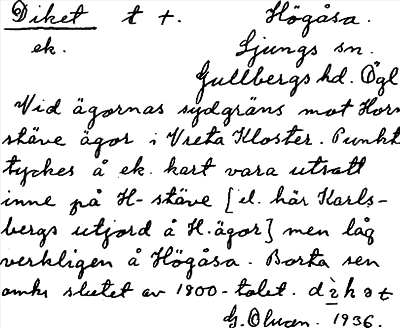 Diket t +. Högåsa.
ek. Ljungs sn.
Gullbergs hd. Ögl
Vid ägornas sydgräns mot Horn
stäve ägor i Vreta Kloster. Punkt
tyckes å ek. kart vara utsatt
inne på H-stäve [el. här Karls-
bergs utjord å H. ägor] men låg
verkligen å Högåsa. Borta sen
omkr slutet av 1800-talet.
G. Olsson. 1936.